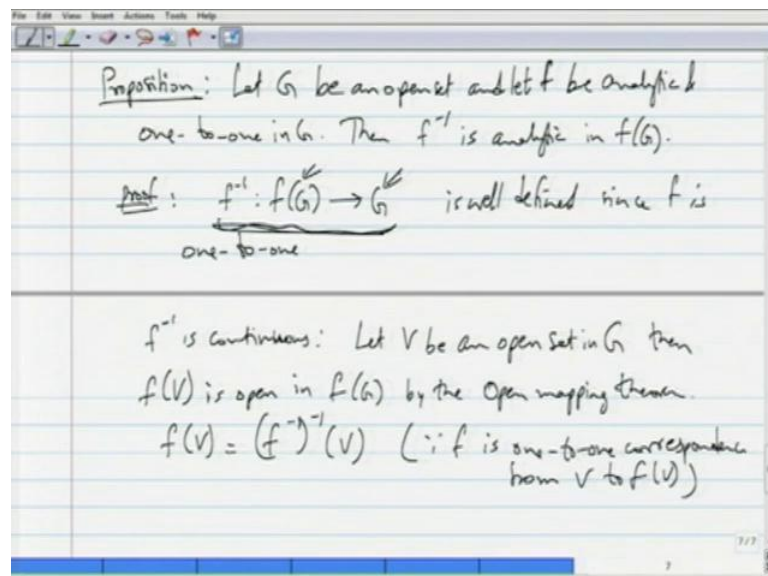 File Edit View Insert Actions Tools Help
Proposition: Let G be an open set and let f be analytic &
one-to-one in G. Then f⁻¹ is analytic in f(G).
Proof: f⁻¹ : f(G) → G is well defined since f is
one-to-one
f⁻¹ is continuous: Let V be an open set in G then
f(V) is open in f(G) by the Open mapping theorem.
f(V) = (f⁻¹)⁻¹(V) (∵ f is one-to-one correspondence
from V to f(V))
7/7
7